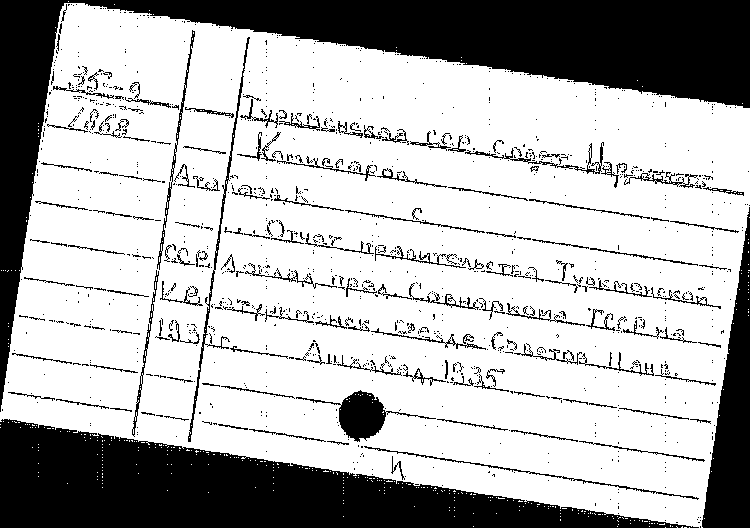 35-9
1868
Туркменская ССР. Совет Народных
Комиссаров.
Атабаев, К
с
... Отчет правительства Туркменской
ССР. Доклад пред. Совнаркома ТССР на
V Всетуркменск. съезде Советов 11 янв.
1935 г. Ашхабад, 1935
И